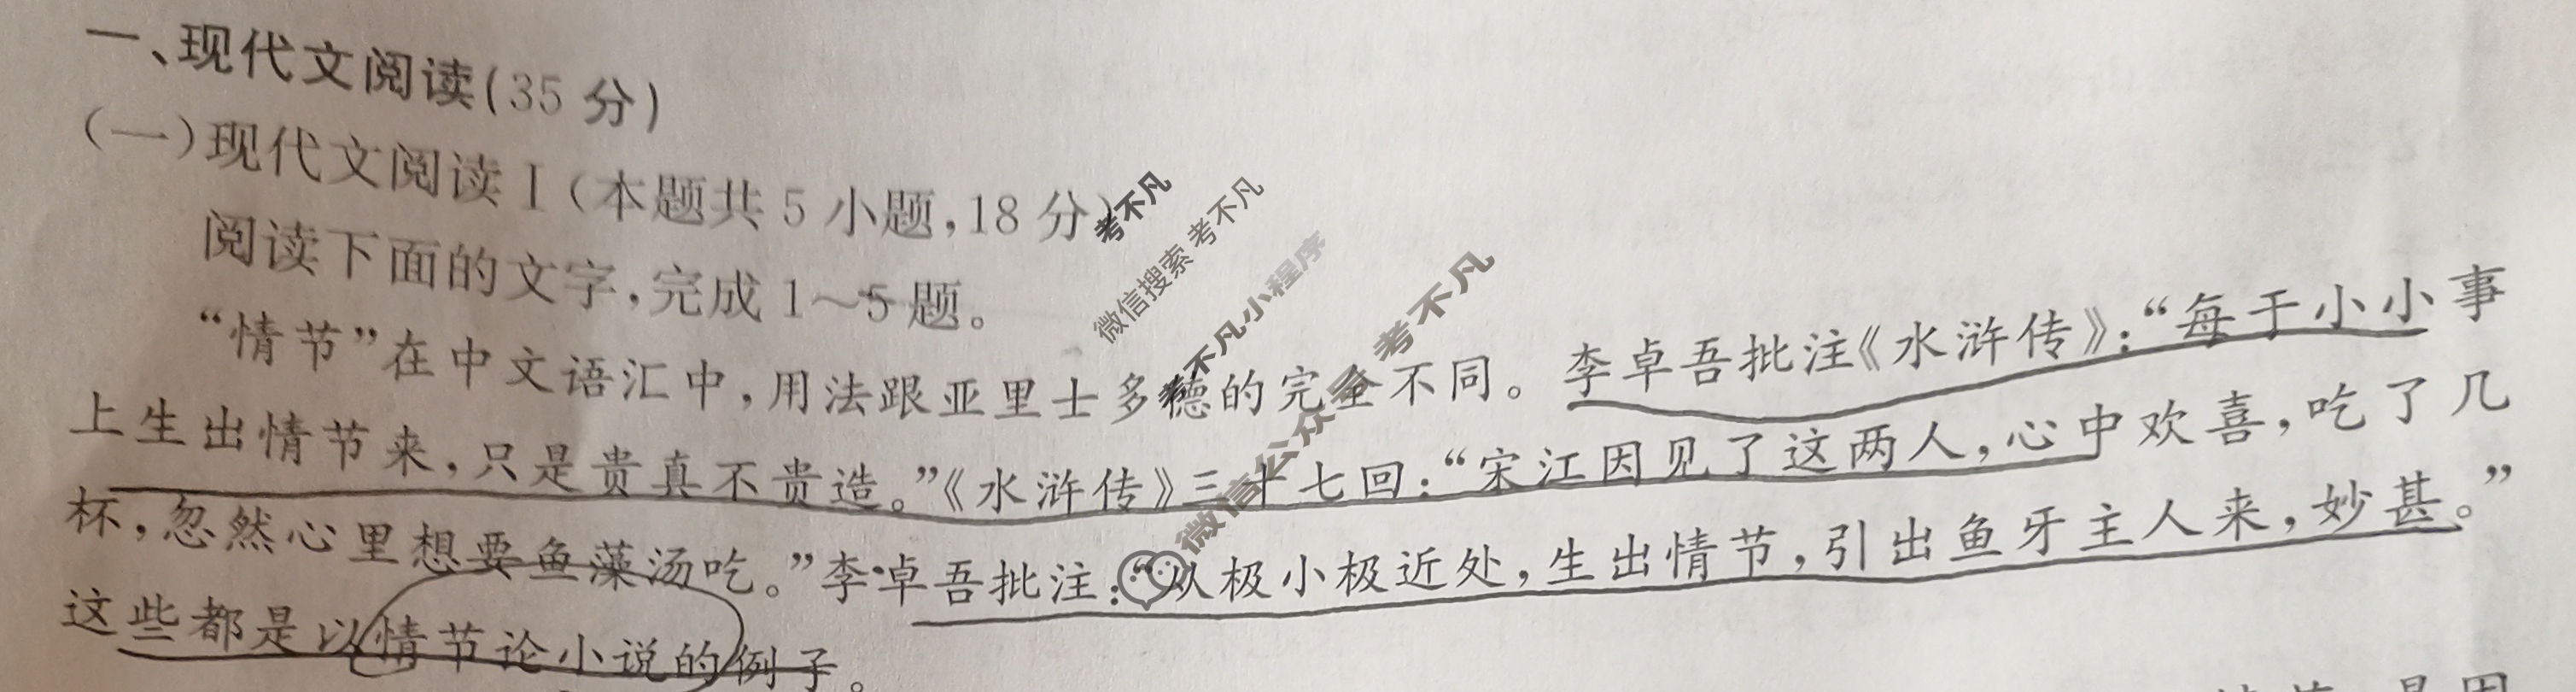 一、现代文阅读(35分)
(一)现代文阅读Ⅰ(本题共5小题,18分)
阅读下面的文字,完成1～5题。
“情节”在中文语汇中,用法跟亚里士多德的完全不同。李卓吾批注《水浒传》:“每于小小事
上生出情节来,只是贵真不贵造。”《水浒传》三十七回:“宋江因见了这两人,心中欢喜,吃了几
杯,忽然心里想要鱼藻汤吃。”李卓吾批注:“从极小极近处,生出情节,引出鱼牙主人来,妙甚。”
这些都是以情节论小说的例子。
考不凡
微信搜索 考不凡
考不凡小程序
微信公众号 考不凡